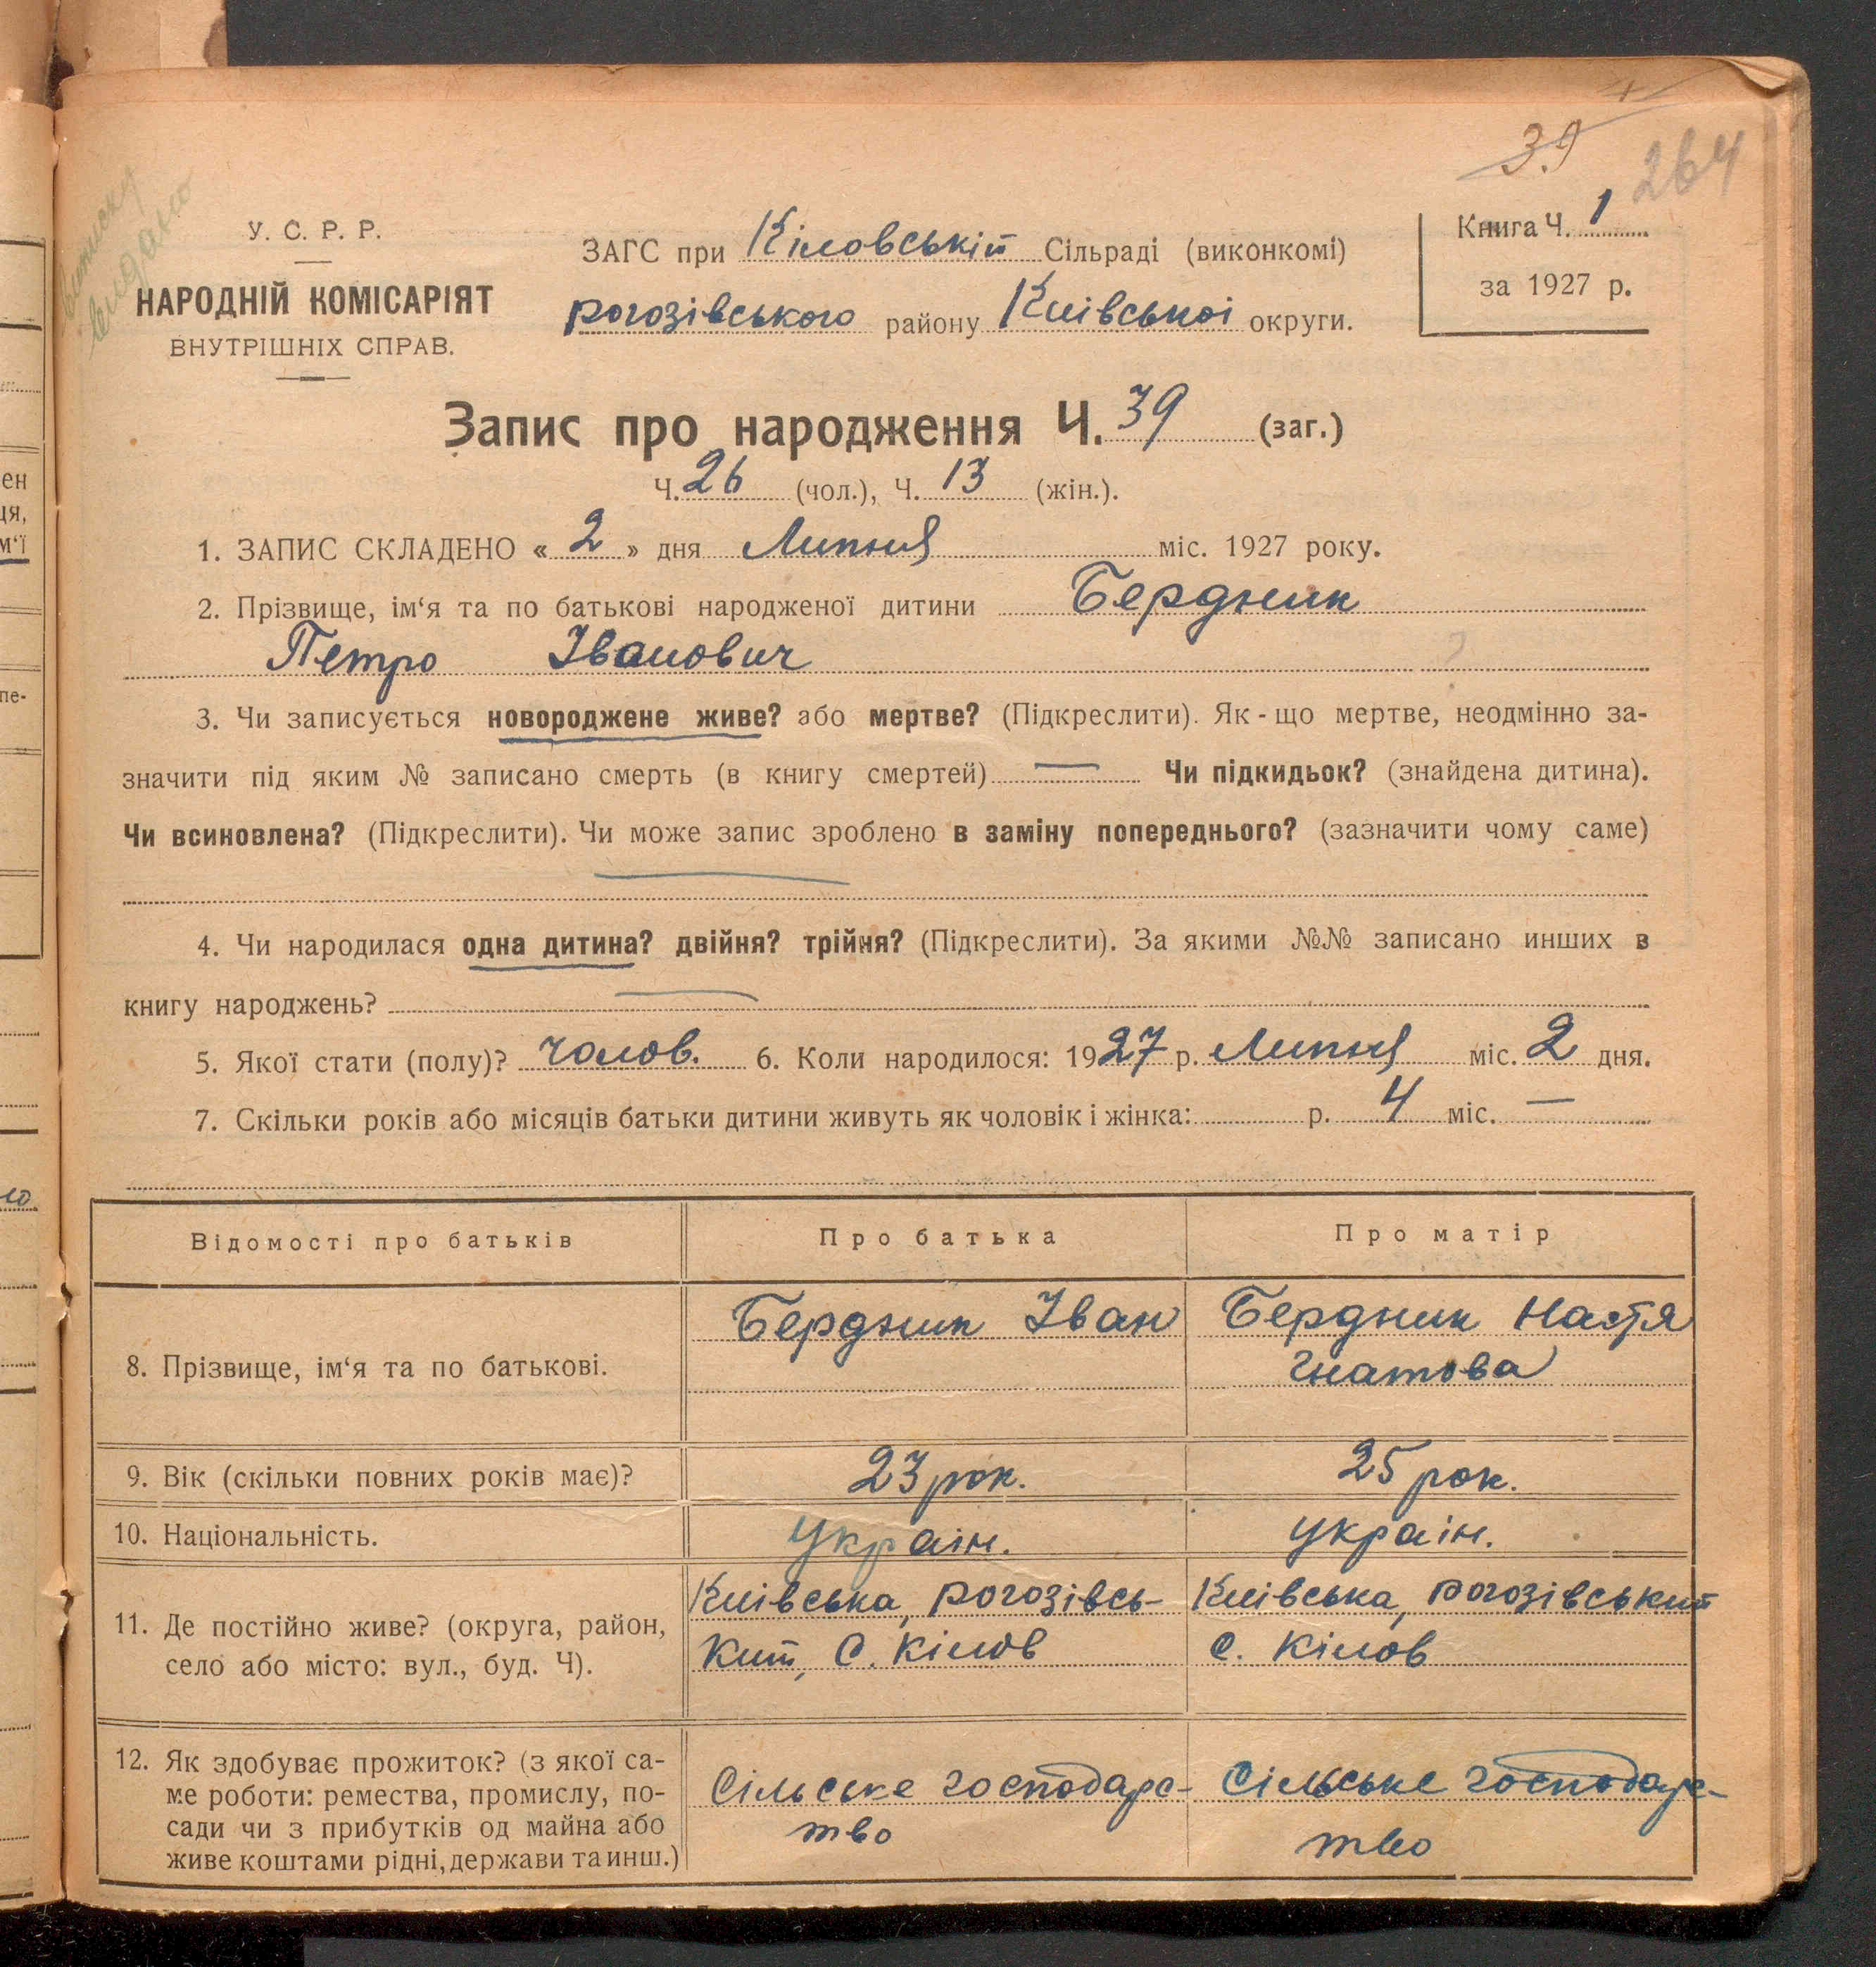 39
264
Виписку
видано
У. С. Р. Р.
НАРОДНІЙ КОМІСАРІЯТ
ВНУТРІШНІХ СПРАВ.
ЗАГС при Кіловській Сільраді (виконкомі)
Рогозівського району Київської округи.
Книга Ч. 1
за 1927 р.
Запис про народження Ч. 39 (заг.)
Ч. 26 (чол.), Ч. 13 (жін.).
1. ЗАПИС СКЛАДЕНО « 2 » дня Липня міс. 1927 року.
2. Прізвище, ім‘я та по батькові народженої дитини Бердник
Петро Іванович
3. Чи записується новороджене живе? або мертве? (Підкреслити). Як - що мертве, неодмінно за-
значити під яким № записано смерть (в книгу смертей) — Чи підкидьок? (знайдена дитина).
Чи всиновлена? (Підкреслити). Чи може запис зроблено в заміну попереднього? (зазначити чому саме)
4. Чи народилася одна дитина? двійня? трійня? (Підкреслити). За якими №№ записано инших в
книгу народжень?
5. Якої стати (полу)? чолов. 6. Коли народилося: 1927 р. Липня міс. 2 дня.
7. Скільки років або місяців батьки дитини живуть як чоловік і жінка: р. 4 міс. —
Відомості про батьків Про батька Про матір
8. Прізвище, ім‘я та по батькові. Бердник Іван Бердник Настя
Гнатова
9. Вік (скільки повних років має)? 23 рок. 25 рок.
10. Національність. Украін. Украін.
11. Де постійно живе? (округа, район,
село або місто: вул., буд. Ч).
Київська, Рогозівсь-
кий, С. Кілов
Київська, Рогозівський
С. Кілов
12. Як здобуває прожиток? (з якої са-
ме роботи: ремества, промислу, по-
сади чи з прибутків од майна або
живе коштами рідні, держави та инш.)
Сільське господарс-
тво
Сільське господарс-
тво